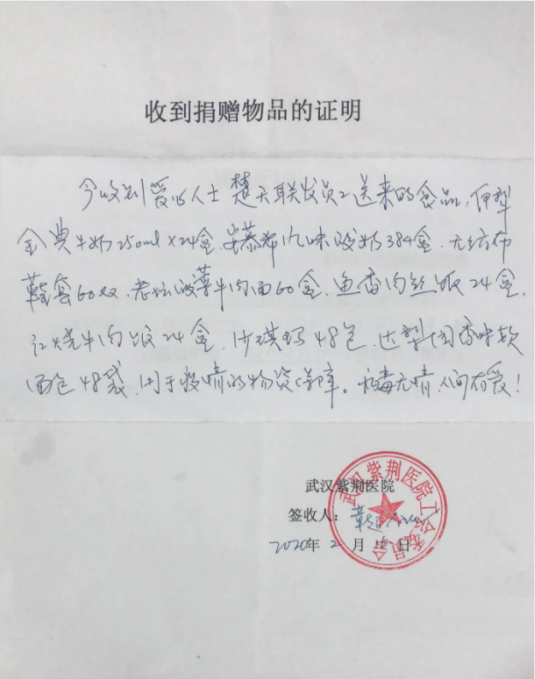 收到捐赠物品的证明
今收到爱心人士楚天联发员工送来的食品,伊利
金典牛奶250ml×24盒,安慕希原味酸奶384盒,无纺布
鞋套60双,老坛酸菜牛肉面60盒,鱼香肉丝饭24盒,
红烧牛肉饭24盒,沙琪玛48包,达利园香软
面包48袋,用于疫情的物资保障。病毒无情,人间有爱!
武汉紫荆医院
签收人:
2020年2月 日
武汉紫荆医院工会委员会